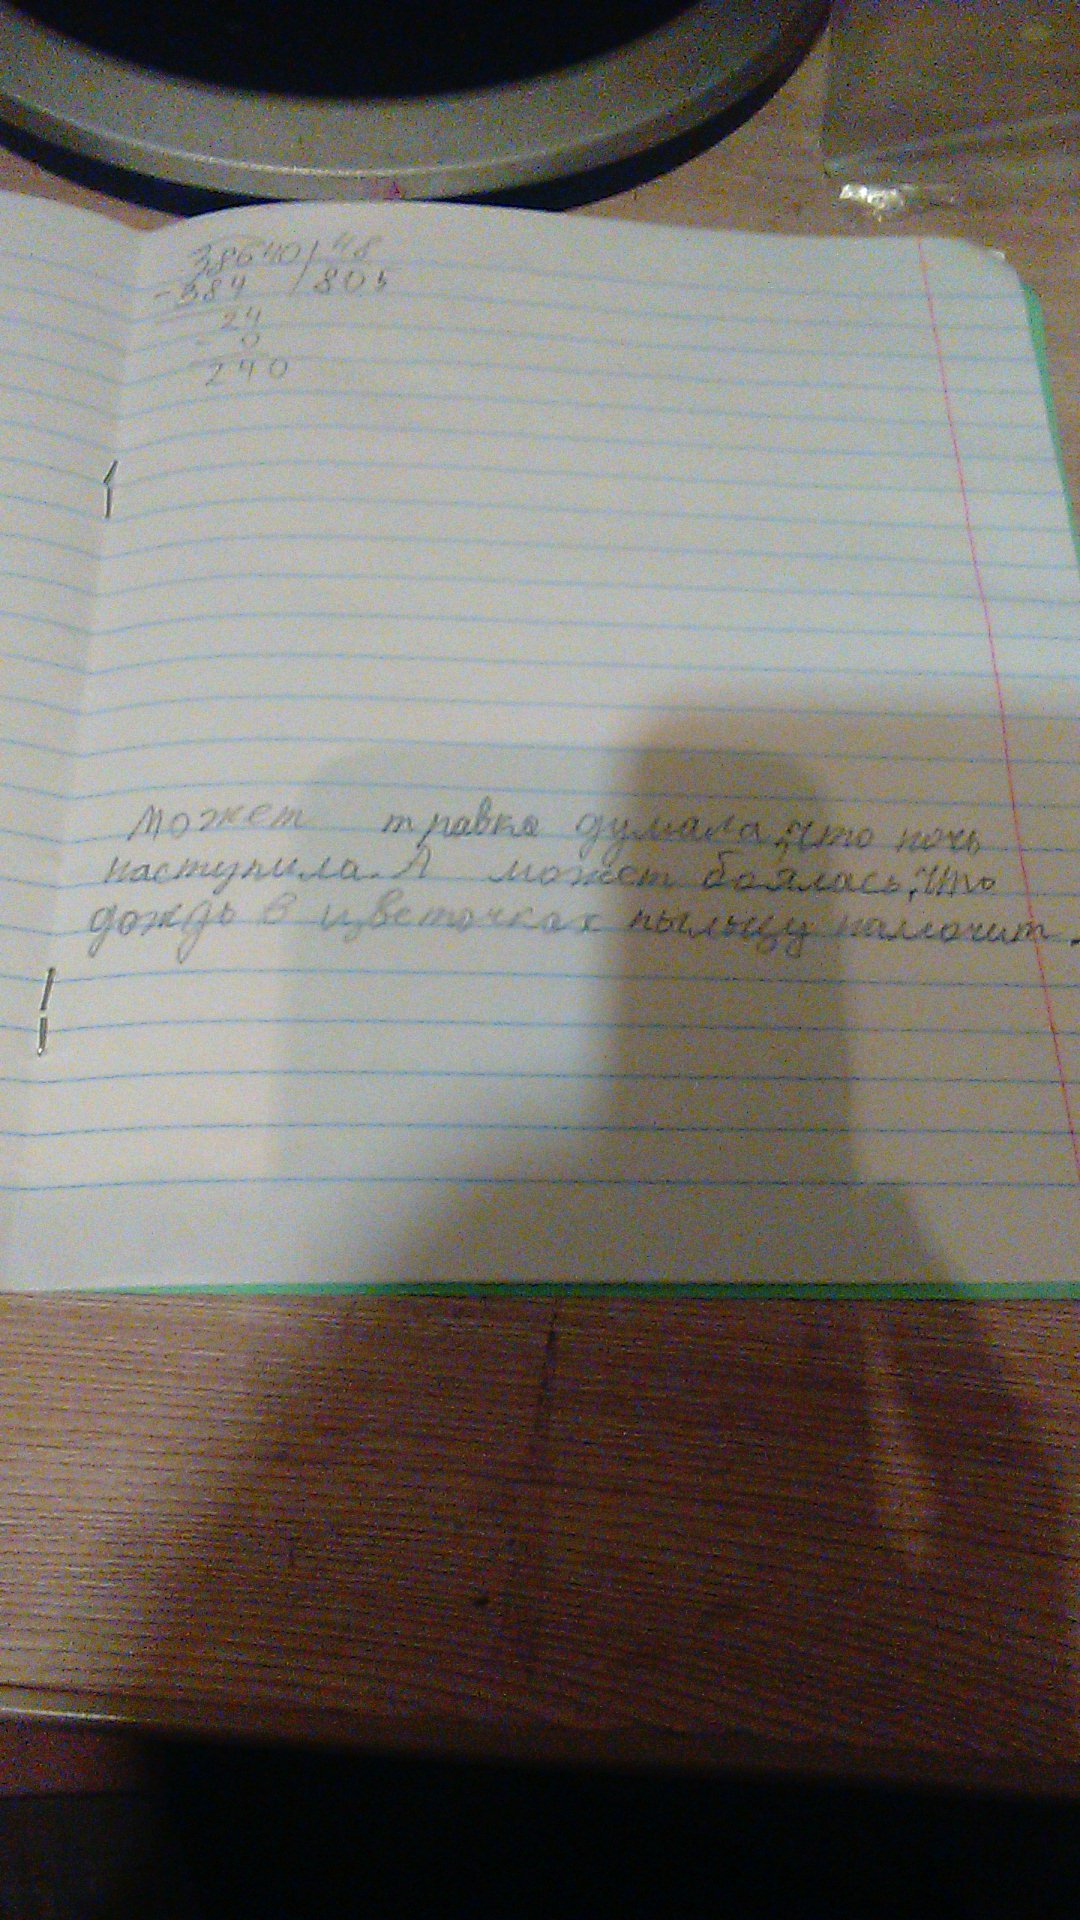 38640 48
- 384 805
24
- 0
240
Может травка думала, что ночь
наступила. А может боялась, что
дождь в цветочках пыльцу намочит.